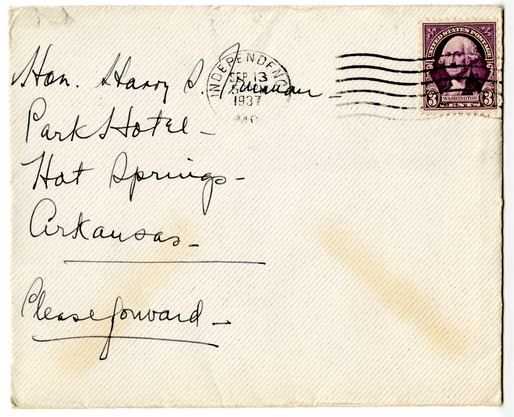 Hon. Harry S. Truman
Park Hotel
Hot Springs
Arkansas
Please forward
INDEPENDENCE
SEP 13
1937
MO.
UNITED STATES POSTAGE
3 WASHINGTON 3
CENTS